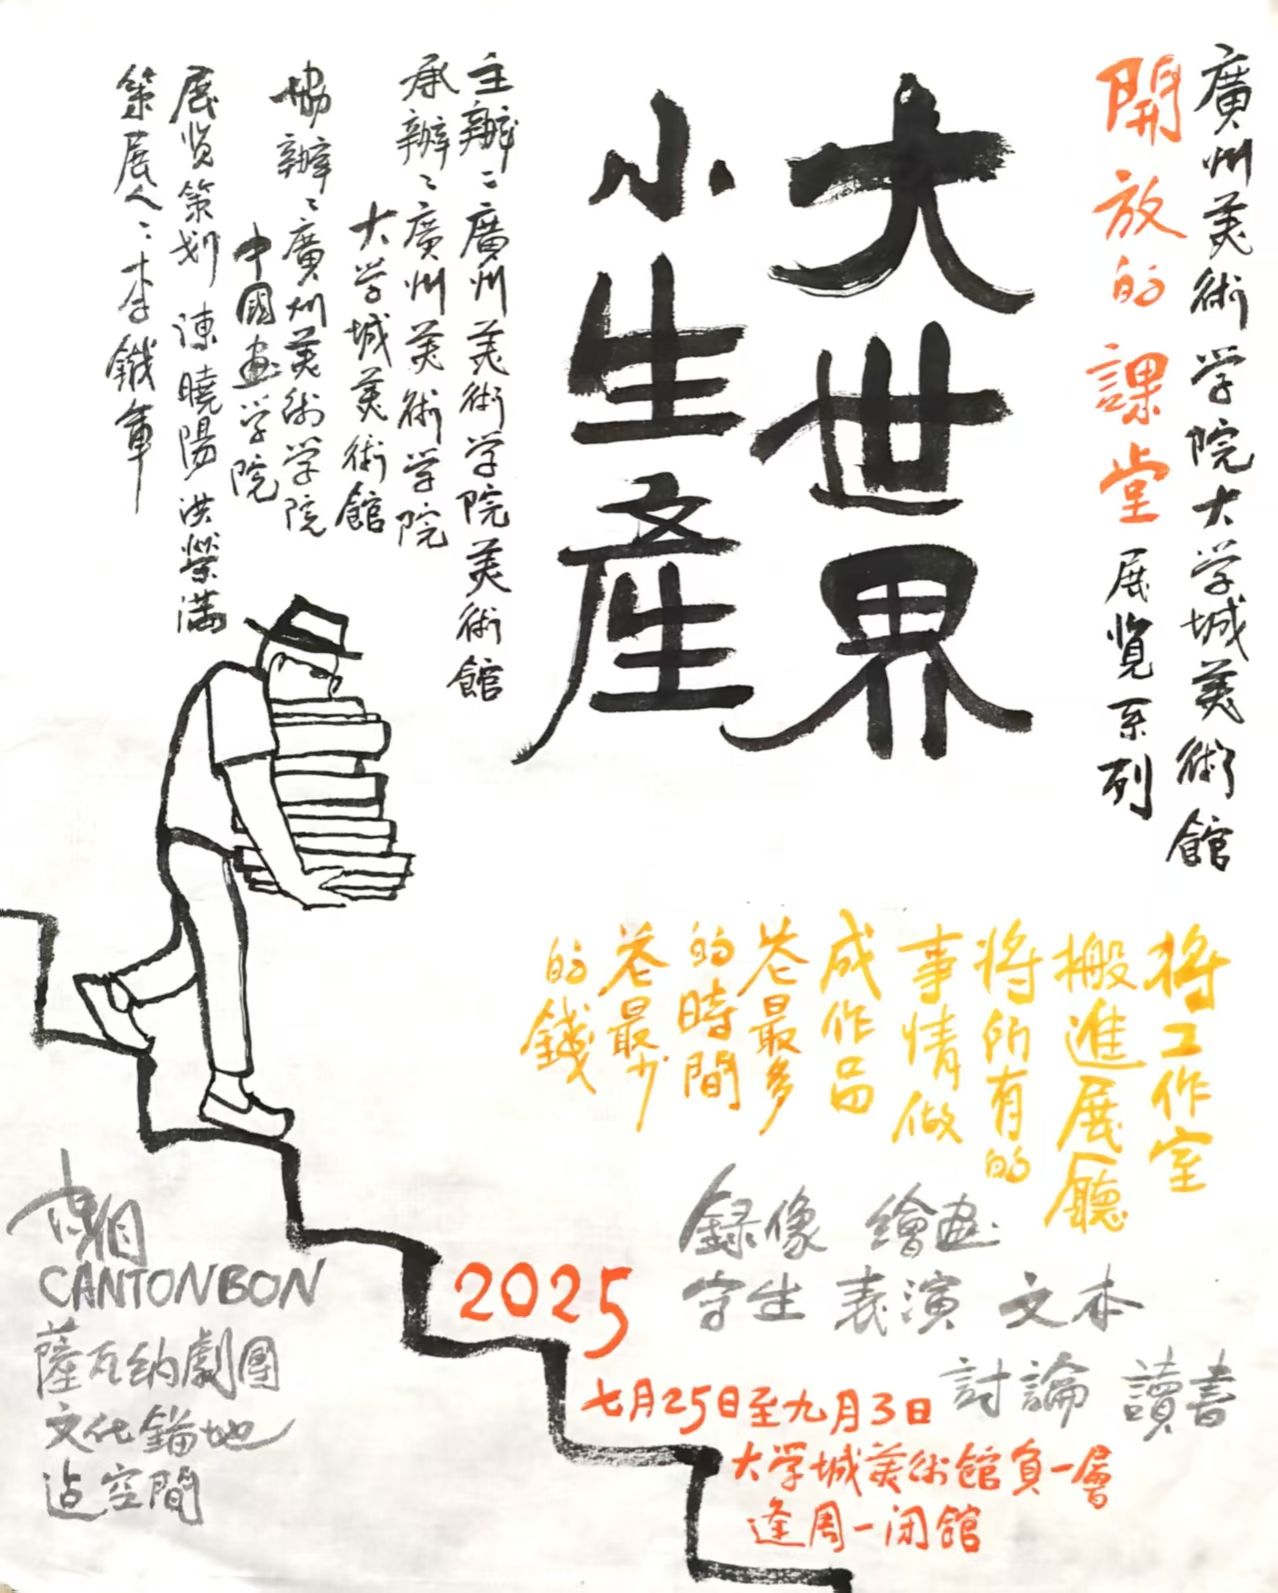 廣州美術学院大学城美術館
開放的課堂展覧系列
大世界
小生產
主辦：廣州美術学院美術館
承辦：廣州美術学院
大学城美術館
協辦：廣州美術学院
中國画学院
展览策划 陳曉陽 洪榮滿
策展人：李鐵軍
将工作室
搬進展廳
将所有的
事情做
成作品
花最多
的時間
花最少
的錢
録像 繪画
写生 表演 文本
討論 讀書
2025
七月25日至九月3日
大学城美術館負一層
逢周一闭館
CANTONBON
薩瓦纳劇團
文化錨地
空間